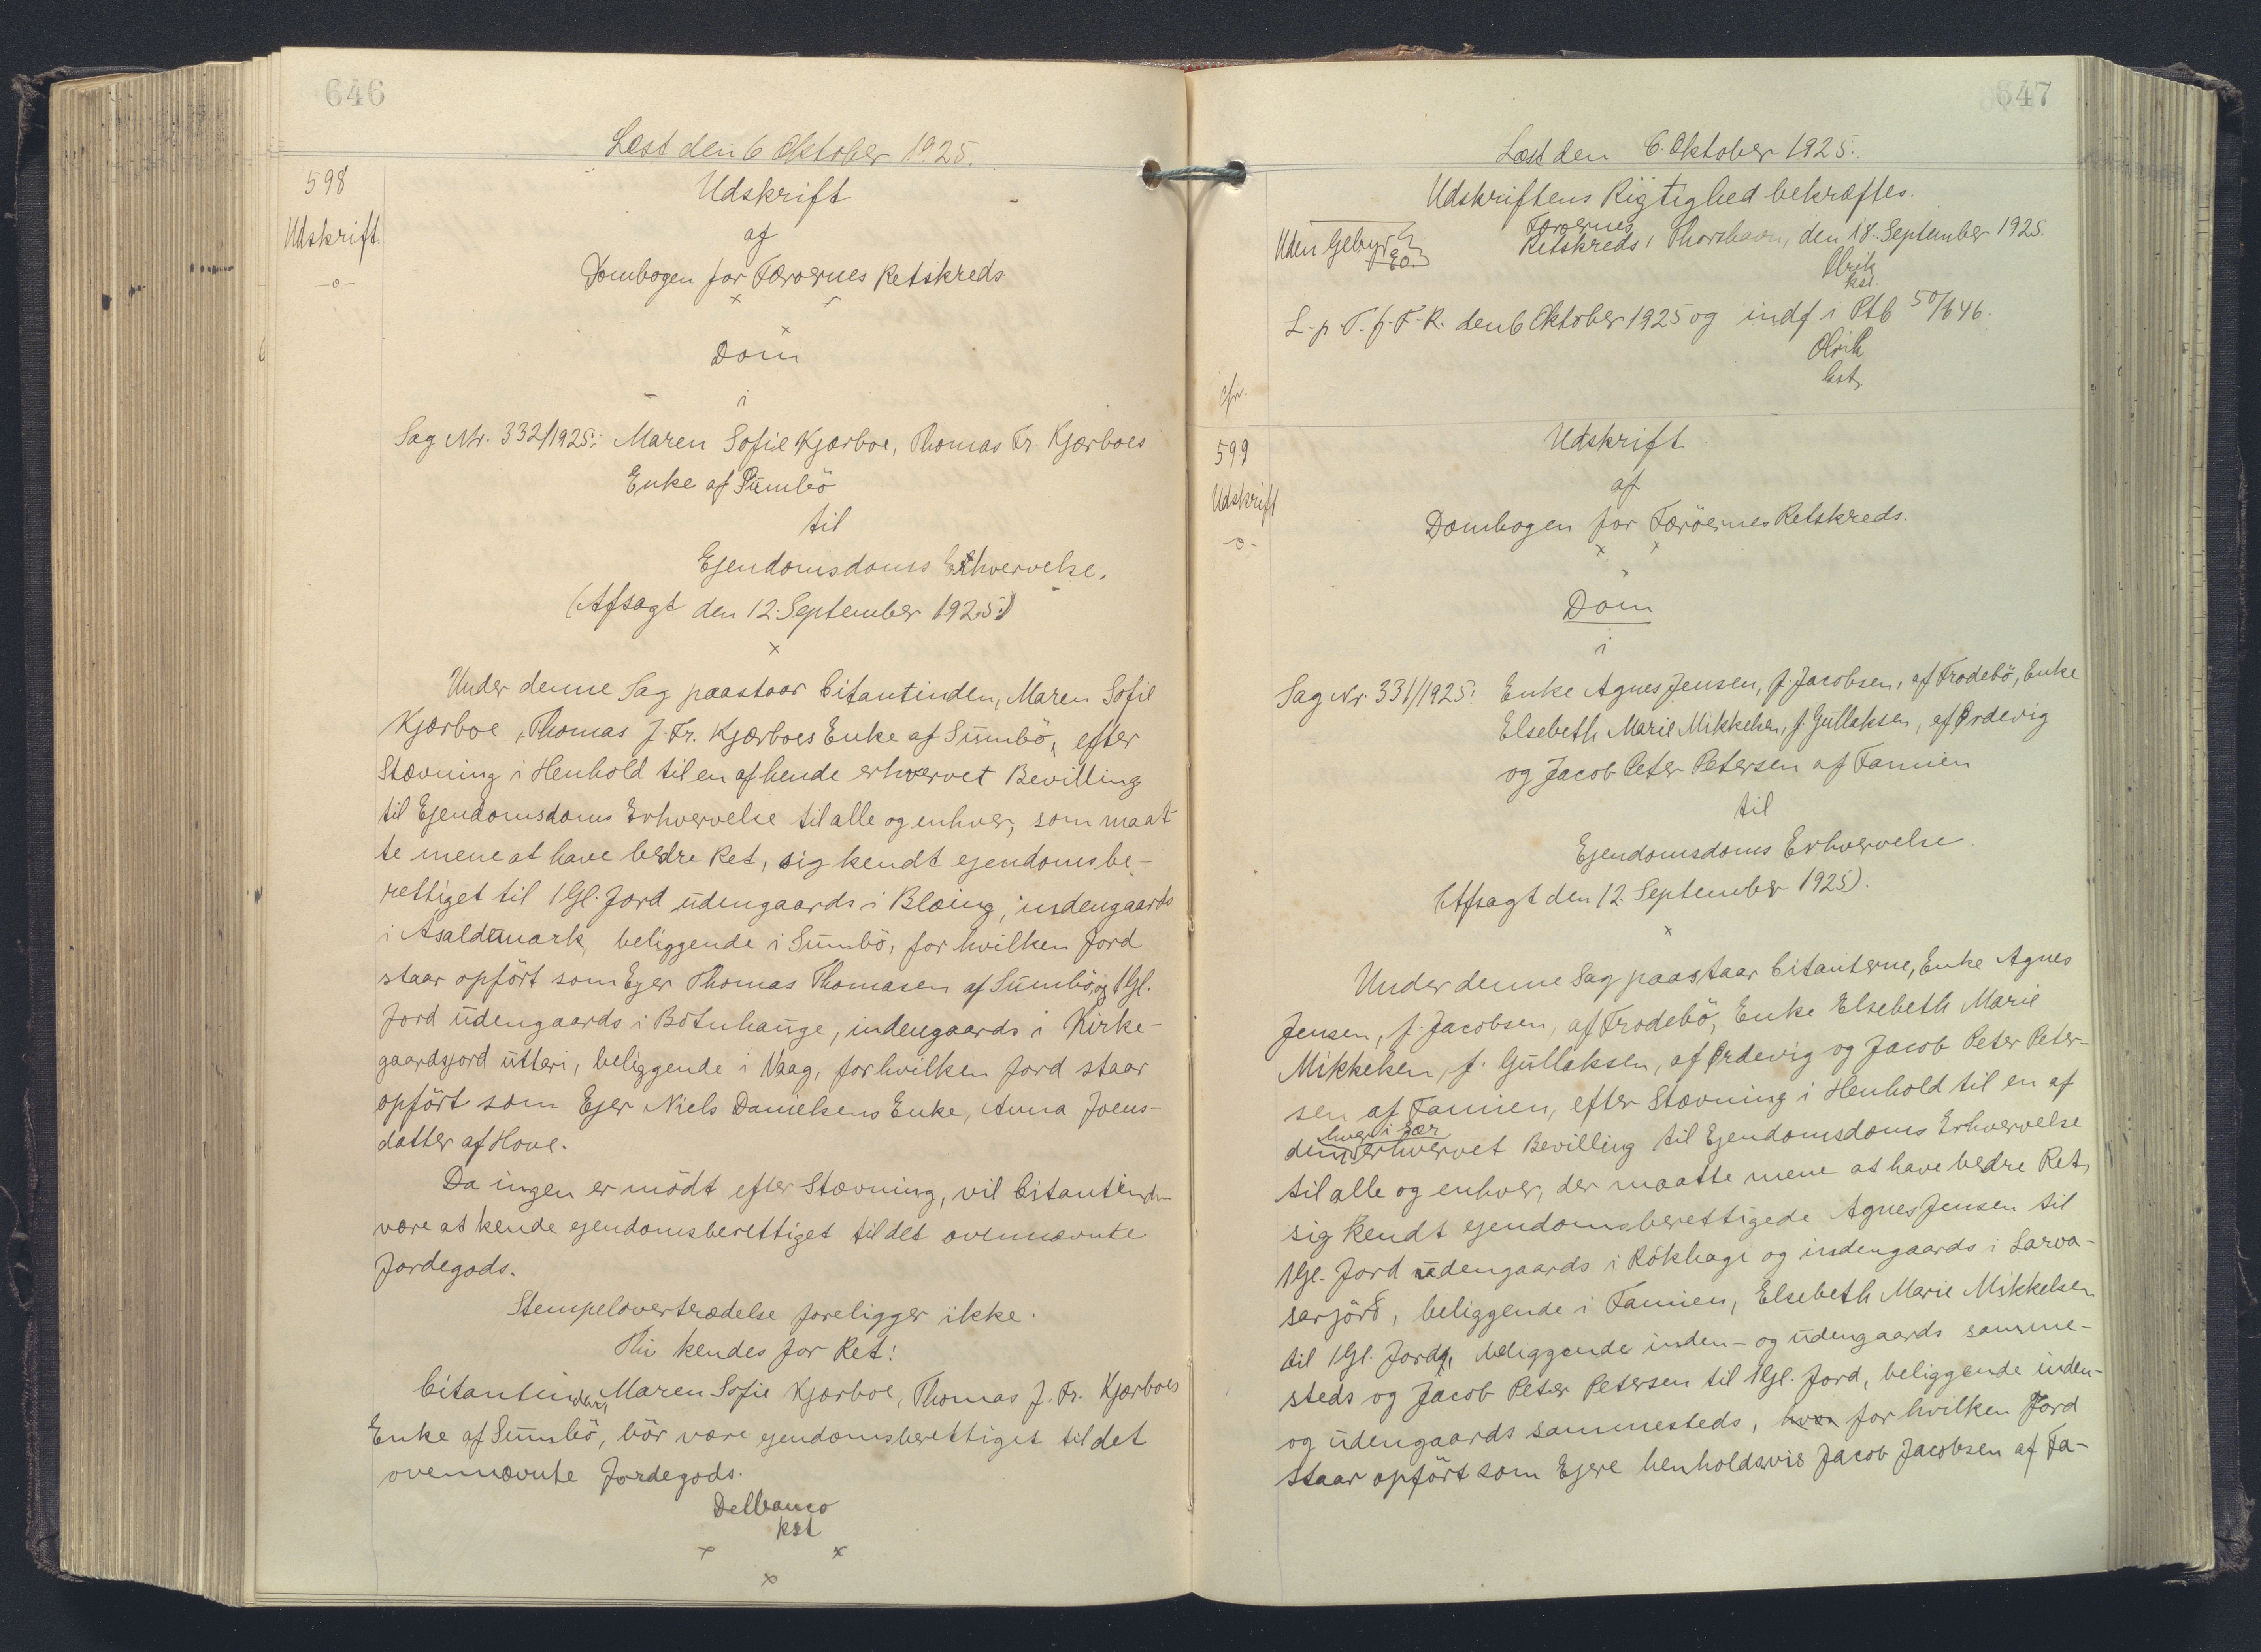 646
Læst den 6 Oktober 1925.
598
Udskrift.
-o-
Udskrift
af
Dombogen for Færøernes Retskreds.
Dom
i
Sag Nr. 332/1925: Maren Sofie Kjærboe, Thomas Fr. Kjærboes
Enke af Sumbö
til
Ejendomsdoms Erhvervelse.
(Afsagt den 12. September 1925.)
Under denne Sag paastaar Citantinden, Maren Sofie
Kjærboe, Thomas J. Fr. Kjærboes Enke af Sumbö, efter
Stævning i Henhold til en af hende erhvervet Bevilling
til Ejendomsdoms Erhvervelse til alle og enhver, som maat
te mene at have bedre Ret, sig kendt ejendomsbe-
rettiget til 1 Gl. Jord udengaards i Blæing, indengaards
i Asaldemark, beliggende i Sumbö, for hvilken Jord
staar opfört som Ejer Thomas Thomasen af Sumbö, og 1 Gl.
Jord udengaards i Botnhauge, indengaards i Kirke-
gaardsjord utteri, beliggende i Vaag, for hvilken Jord staar
opfört som Ejer Niels Danielsens Enke, Anna Joens-
datter af Hove.
Da ingen er mödt efter Stævning, vil Citantinden
være at kende ejendomsberettiget til det ovennævnte
Jordegods.
Stempelovertrædelse foreligger ikke.
Thi kendes for Ret:
Citantinden, Maren Sofie Kjærboe, Thomas J. Fr. Kjærboes
Enke af Sumbö, bör være ejendomsberettiget til det
ovennævnte Jordegods.
Delbanco
kst
647
Læst den 6. Oktober 1925.
Udskriftens Rigtighed bekræftes.
Uden Gebyr
Færøernes
Retskreds, Thorshavn, den 18. September 1925.
Olrik
kst.
L. p. T. f. F. R. den 6 Oktober 1925 og indf i Ptb 50/646.
Olrik
cst
cfr.
599
Udskrift
-o-
Udskrift
af
Dombogen for Færöernes Retskreds.
Dom
i
Sag Nr. 331/1925: Enke Agnes Jensen, f. Jacobsen, af Frodebö, Enke
Elsebeth Marie Mikkelsen, f. Gullaksen, af Ørdevig
og Jacob Peter Petersen af Famien
til
Ejendomsdoms Erhvervelse
(Afsagt den 12. September 1925).
Under denne Sag paastaar Citanterne, Enke Agnes
Jensen, f. Jacobsen, af Frodebö, Enke Elsebeth Marie
Mikkelsen, f. Gullaksen, af Ørdevig og Jacob Peter Peter-
sen af Famien, efter Stævning i Henhold til en af
hver i Sær
dem erhvervet Bevilling til Ejendomsdoms Erhvervelse
til alle og enhver, der maatte mene at have bedre Ret,
sig kendt ejendomsberettigede Agnes Jensen til
1 Gl. Jord udengaards i Rökhagi og indengaards i Larva-
sarjörd, beliggende i Famien, Elsebeth Marie Mikkelsen
til 1 Gl. Jord, beliggende inden- og udengaards samme-
steds og Jacob Peter Petersen til 1 Gl. Jord, beliggende inden-
og udengaards sammesteds, for hvilken Jord
staar opfört som Ejere henholdsvis Jacob Jacobsen af Fa-